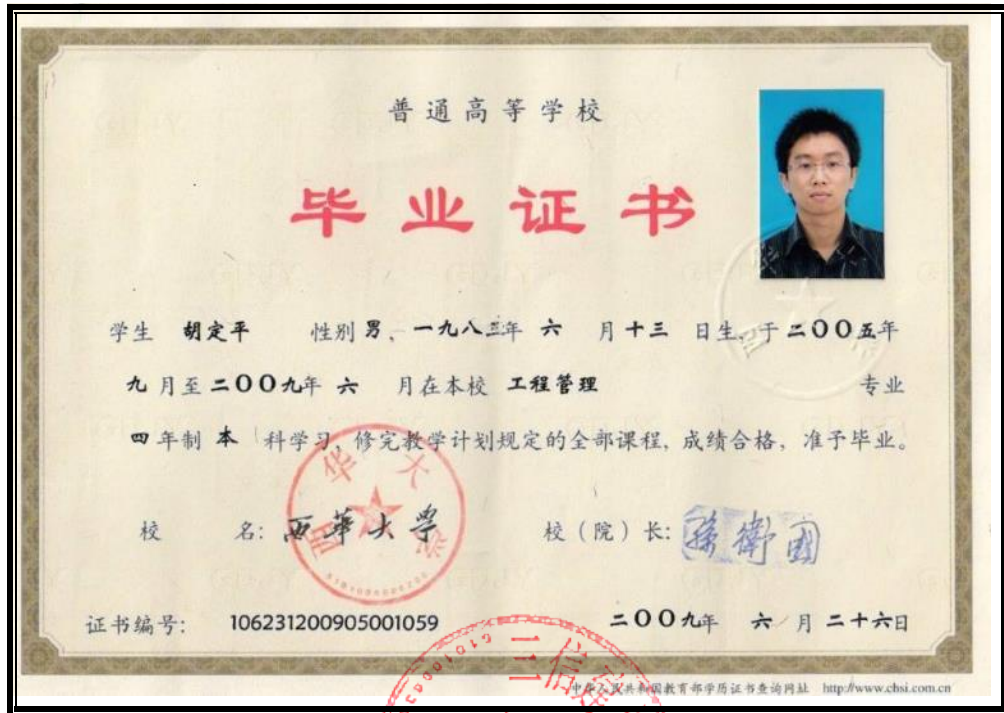 普通高等学校
毕业证书
学生 胡定平 性别 男、一九八三年 六 月 十三 日生,于 二〇〇五年
九 月至 二〇〇九年 六 月在本校 工程管理 专业
四 年制 本 科学习,修完教学计划规定的全部课程,成绩合格,准予毕业。
校 名: 西華大學 校(院)长: 孫衛國
西华大学
证书编号: 106231200905001059 二〇〇九年 六 月 二十六日
三信
中华人民共和国教育部学历证书查询网址 http://www.chsi.com.cn